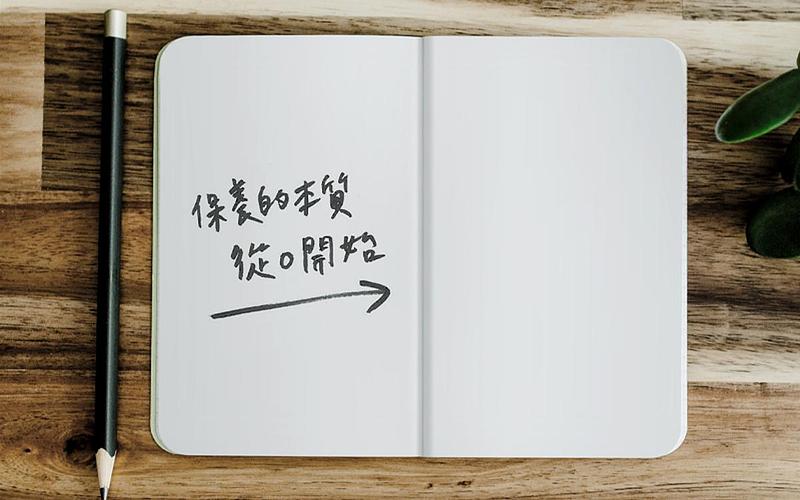 保養的本質
從0開始